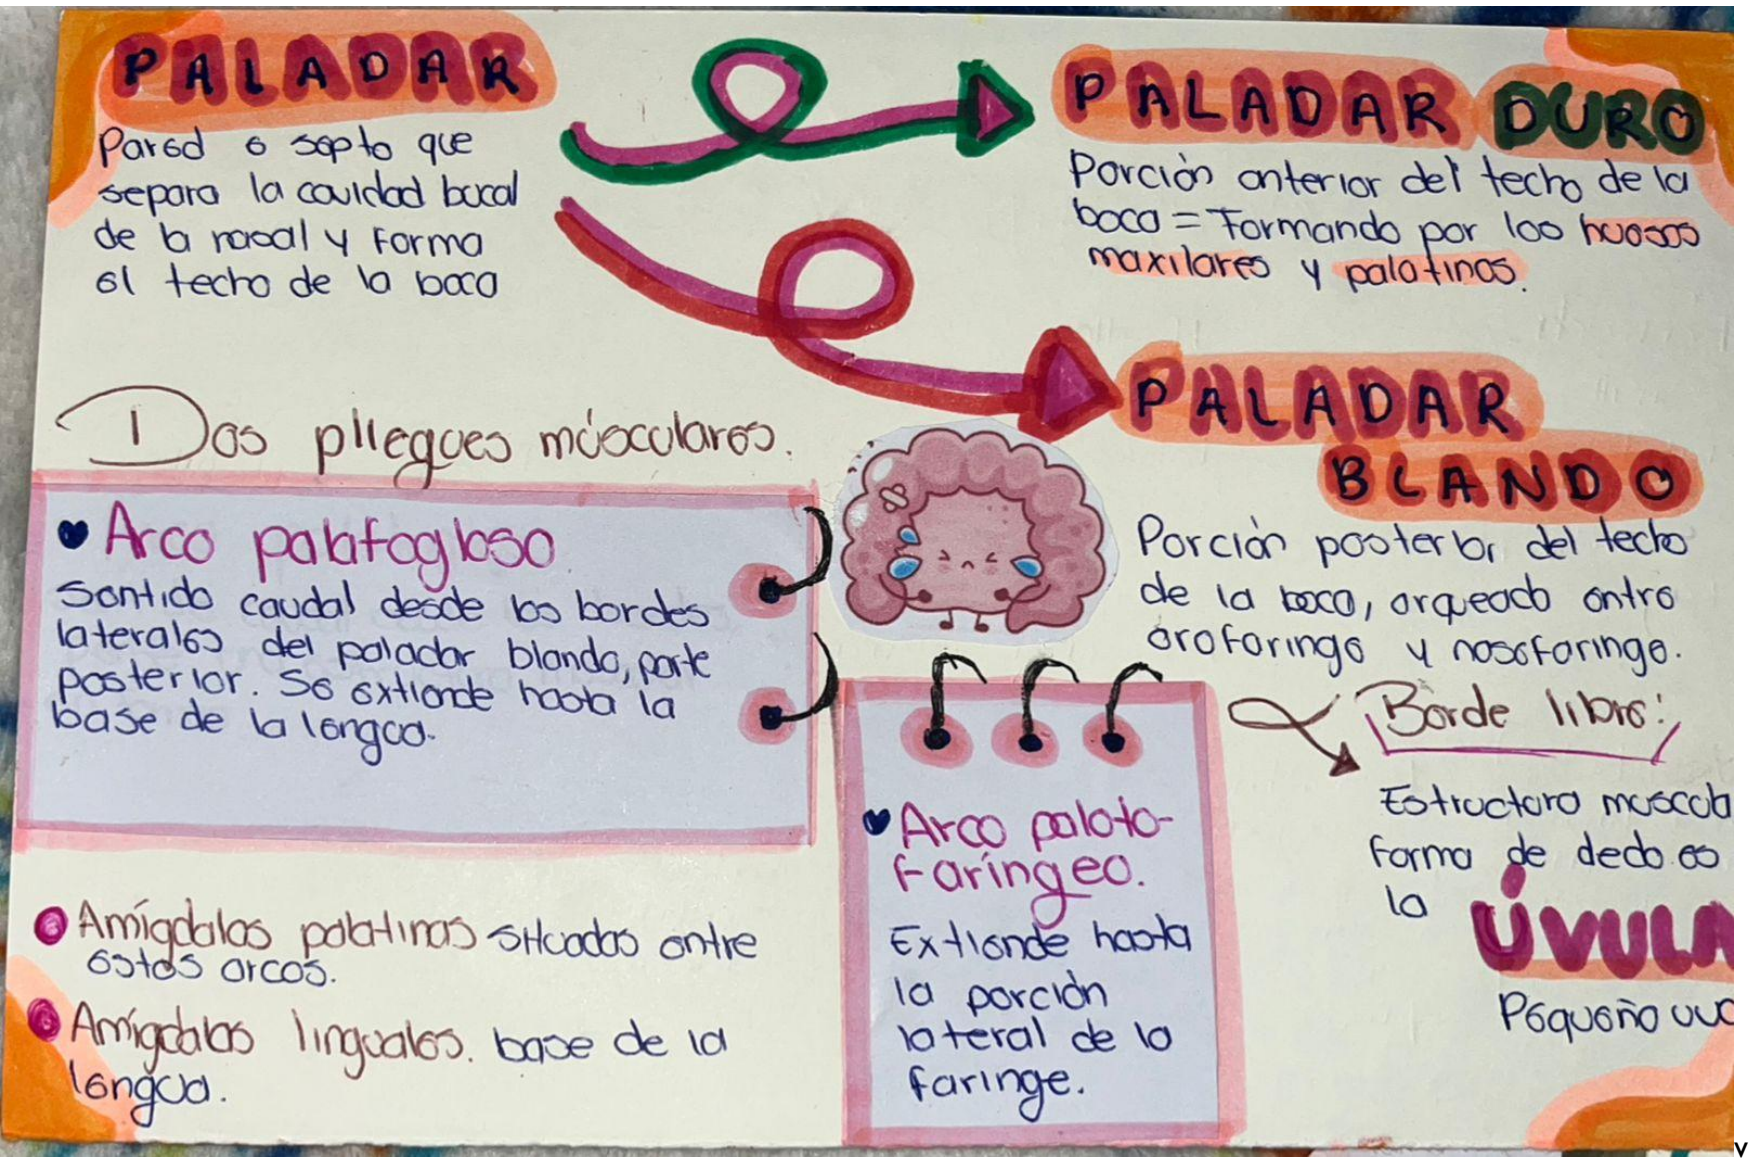 PALADAR
Pared o septo que
separa la cavidad bucal
de la nasal y Forma
el techo de la boca
PALADAR DURO
Porción anterior del techo de la
boca = Formando por los huesos
maxilares y palatinos.
PALADAR
BLANDO
Porción posterior del techo
de la boca, arqueado entre
orofaringe y nasofaringe.
Borde libre:
Estructura muscula
forma de dedo es
la
ÚVULA
Pequeño uva
Dos pliegues músculares.
Arco palatogloso
Sentido caudal desde los bordes
laterales del paladar blando, parte
posterior. Se extiende hasta la
base de la lengua.
Arco palato-
faríngeo.
Extiende hasta
la porción
lateral de la
faringe.
Amígdalas palatinas situadas entre
estos arcos.
Amígdalas linguales. base de la
lengua.
v